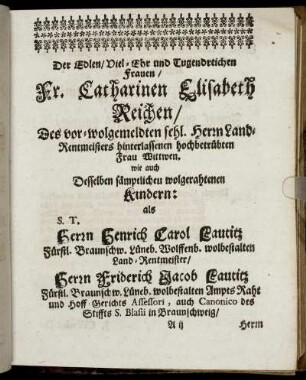 Der Edlen/ Viel-Ehr und Tugendreichen
Frauen/
Fr. Catharinen Elisabeth
Reichen/
Des vor-wolgemeldten sehl. Herrn Land-
Rentmeisters hinterlassenen hochbetrübten
Frau Wittwen.
wie auch
Desselben sämptlichen wolgerahtenen
Kindern:
als
S. T.
Herrn Henrich Carol Lautitz
Fürstl. Braunschw. Lüneb. Wolffenb. wolbestalten
Land-Rentmeister/
Herrn Friderich Jacob Lautitz
Fürstl. Braunschw. Lüneb. wolbestalten Ampts Raht
und Hoff-Gerichts Assessori, auch Canonico des
Stiffts S. Blasii in Braunschweig/
A ij Herrn